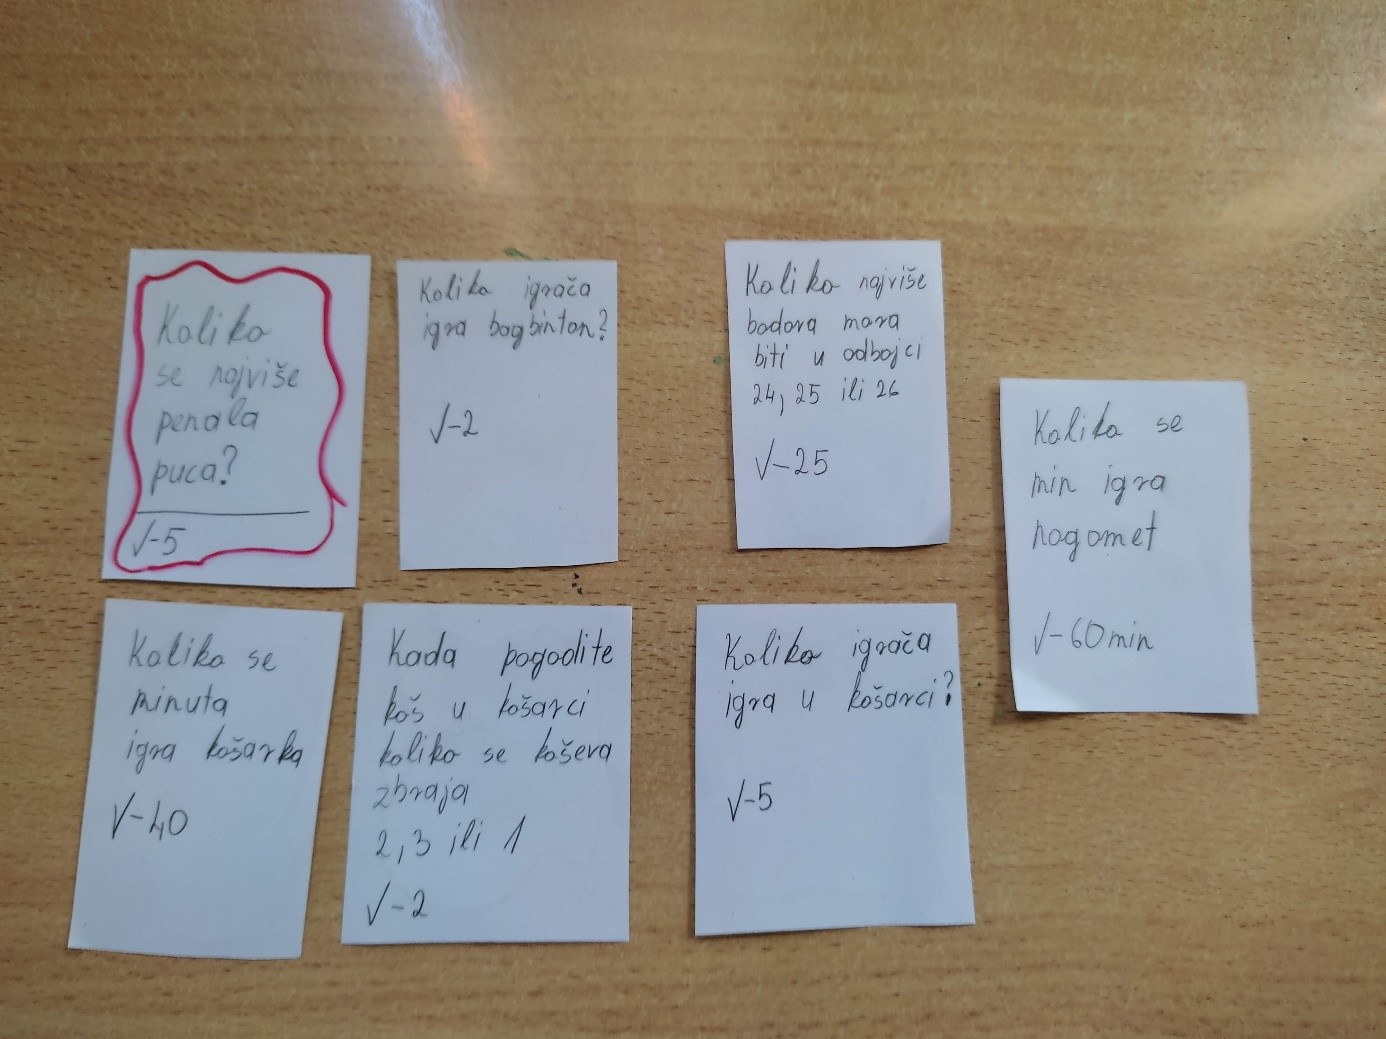 Koliko
se najviše
penala
puca?
√-5
Koliko igrača
igra bagbinton?
√-2
Koliko najviše
bodova mora
biti u odbojci
24, 25 ili 26
√-25
Koliko se
min igra
nogomet
√-60min
Koliko se
minuta
igra košarka
√-40
Kada pogodite
koš u košarci
koliko se koševa
zbraja
2, 3 ili 1
√-2
Koliko igrača
igra u košarci?
√-5